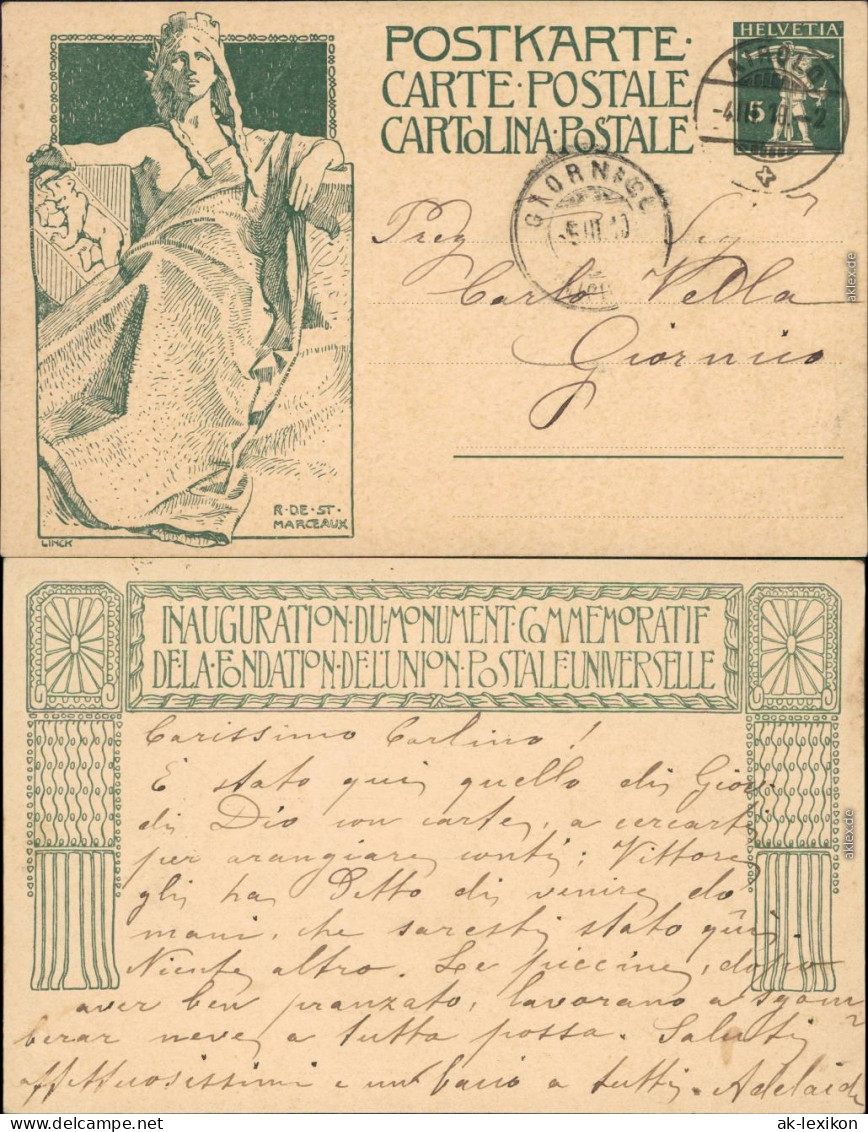 POSTKARTE·
CARTE·POSTALE
CARTOLINA·POSTALE
HELVETIA
5
AIROLO
-4.III.10.-2
GIORNICO
-5.III.10
Preg Sig
Carlo Vella
Giornico
R·DE·ST·
MARCEAUX
LINCK
aklex.de
INAUGURATION·DU·MONUMENT·COMMEMORATIF
DE·LA·FONDATION·DE·L'UNION·POSTALE·UNIVERSELLE
Carissimo Carlino!
È stato qui quello di Giov.
di Dio con carte, a cercarti
per arangiare conti; Vittore
gli ha Ditto di venire do
mani, che saresti stato qui.
Niente altro. Le piccine, dopo
aver ben pranzato, lavorano a sgom
berar neve a tutta possa. Saluti
affettuosissimi e un bacio a tutti. Adelaide
aklex.de
www.ak-lexikon.de